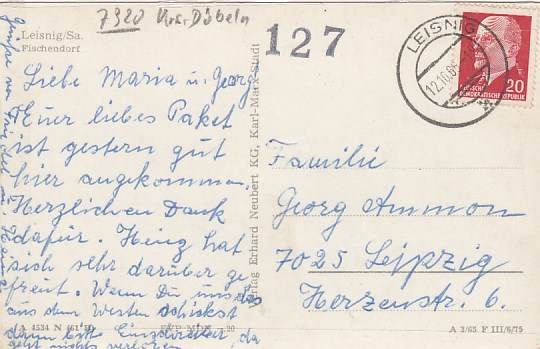 7320 Krs. Döbeln
Leisnig/Sa.
Fischendorf
127
LEISNIG
12.10.65
20
DEUTSCHE
DEMOKRATISCHE REPUBLIK
Liebe Maria u. Georg
Euer liebes Paket
ist gestern gut
hier angekommen.
Herzlichen Dank
dafür. Heinz hat
sich sehr darüber ge
freut. Wenn Du uns was
aus dem Westen schickst
dann bitte Einschreiben, da
geht nichts verloren
Grüße von
Verlag Erhard Neubert KG, Karl-Marx-Stadt
Familie
Georg Ammon
7025 Leipzig
Herzenstr. 6.
A 4534 N
A 3/65 F III/6/75